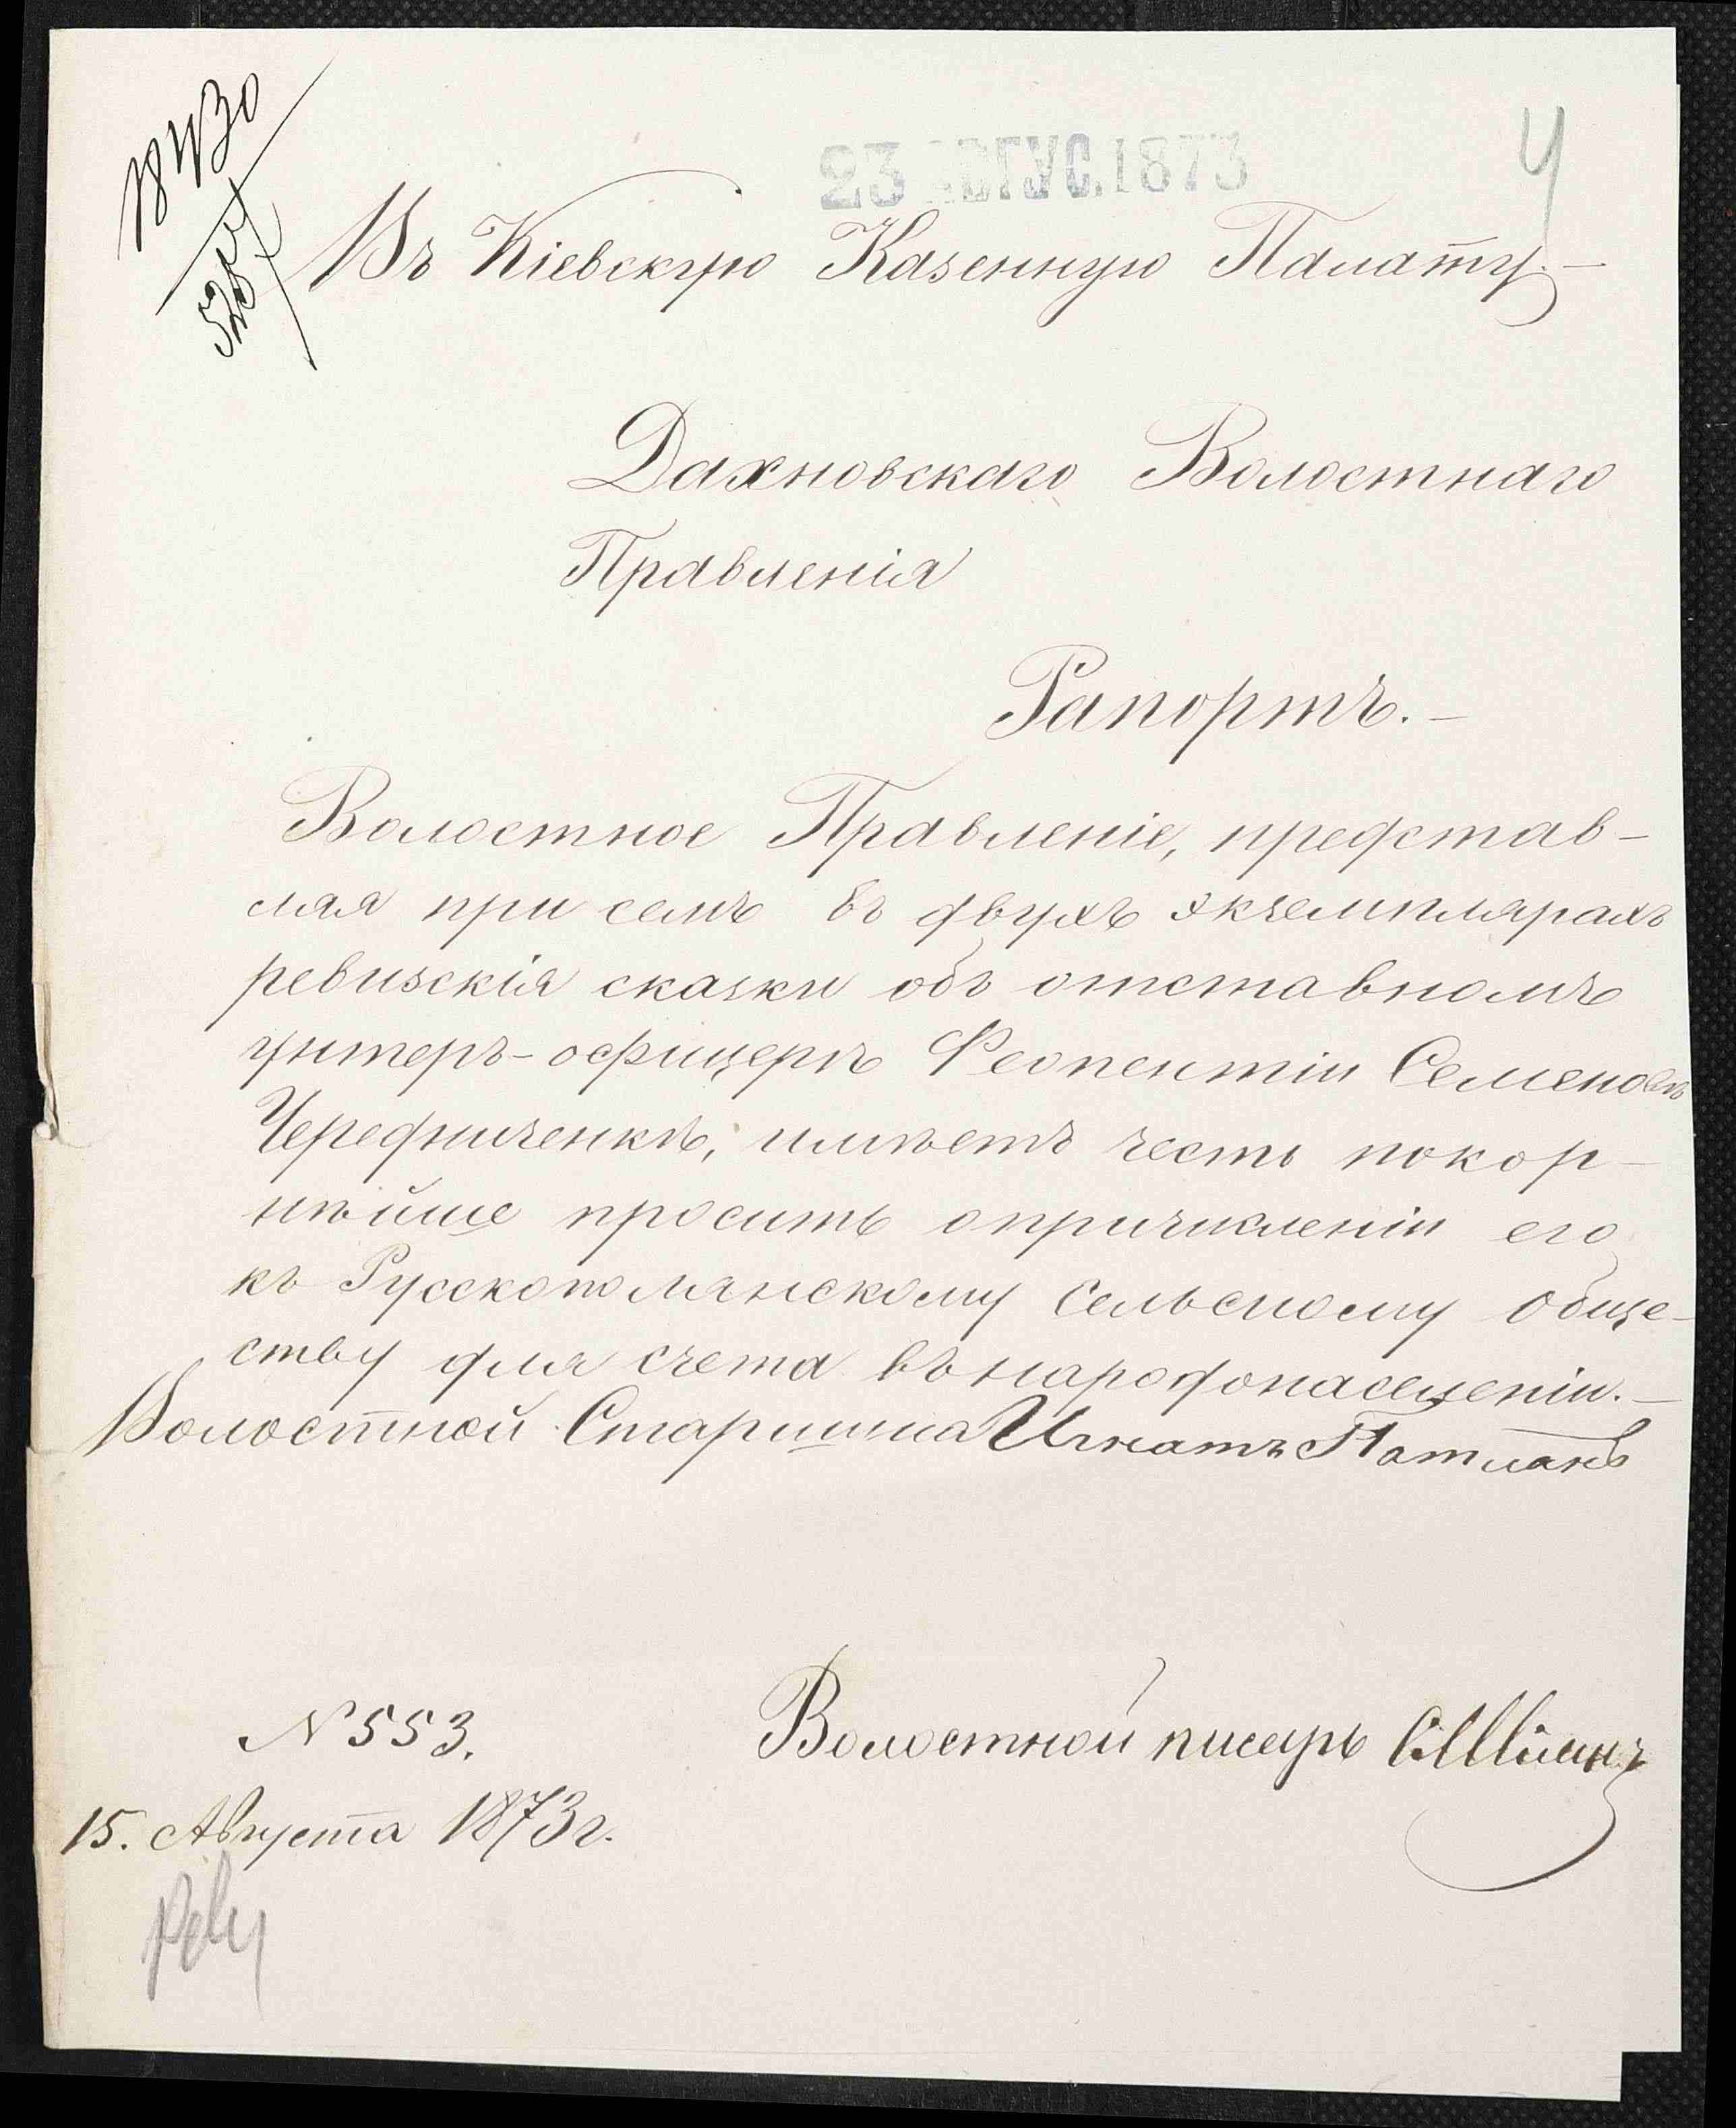 23 АВГУС. 1873
4
Въ Кіевскую Казенную Палату.—
Дахновскаго Волостнаго
Правленія
Рапортъ.—
Волостное Правленіе, представ-
ляя при семъ въ двухъ экземплярахъ
ревизскія сказки объ отставномъ
унтеръ-офицерѣ Феопентіи Семеновѣ
Чередниченкѣ, имѣетъ честь покор-
нѣйше просить опричисленіи его
къ Русскополянскому сельскому обще-
ству для счета въ народонаселеніи.—
Волостной Старшина Игнатъ
N 553.
Волостной писарь
15. Августа 1873 г.